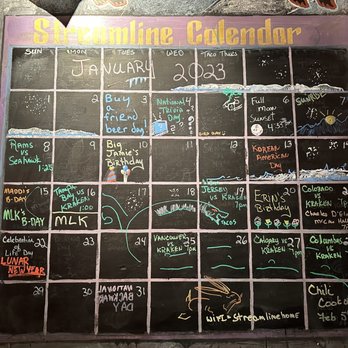 Streamline Calendar
SUN MON TUES WED TACO THURS
JANUARY 2023
1 2 3 4 5 6 7
Buy a friend beer day!
National Trivia Day
Full Moon Sunset 4:35
8 9 10 11 12 13 14
Rams vs Seahawk 1:25
Big Jamie's Birthday
Korean American Day
15 16 17 18 19 20 21
Maddi's B-DAY
MLK's B-DAY
Tampa Bay vs KRAKEN 1:00
MLK
JERSEY vs KRAKEN 7pm
ERIN'S Birthday
Colorado vs KRAKEN 7pm
22 23 24 25 26 27 28
Celebration of Life Day
LUNAR NEW YEAR
VANCOUVER vs KRAKEN 7pm
Calgary vs KRAKEN 7pm
Columbus vs KRAKEN
29 30 31
NATIONAL BACKWARD DAY
wifi - streamlinehome
Chili Cook
Feb 5